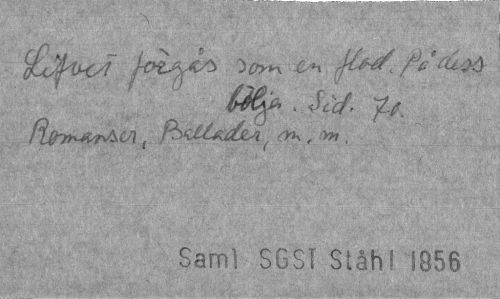 Lifvet förgås som en flod. På dess
bölja. Sid. 70.
Romanser, Ballader, m. m.
Saml SGST Ståhl 1856